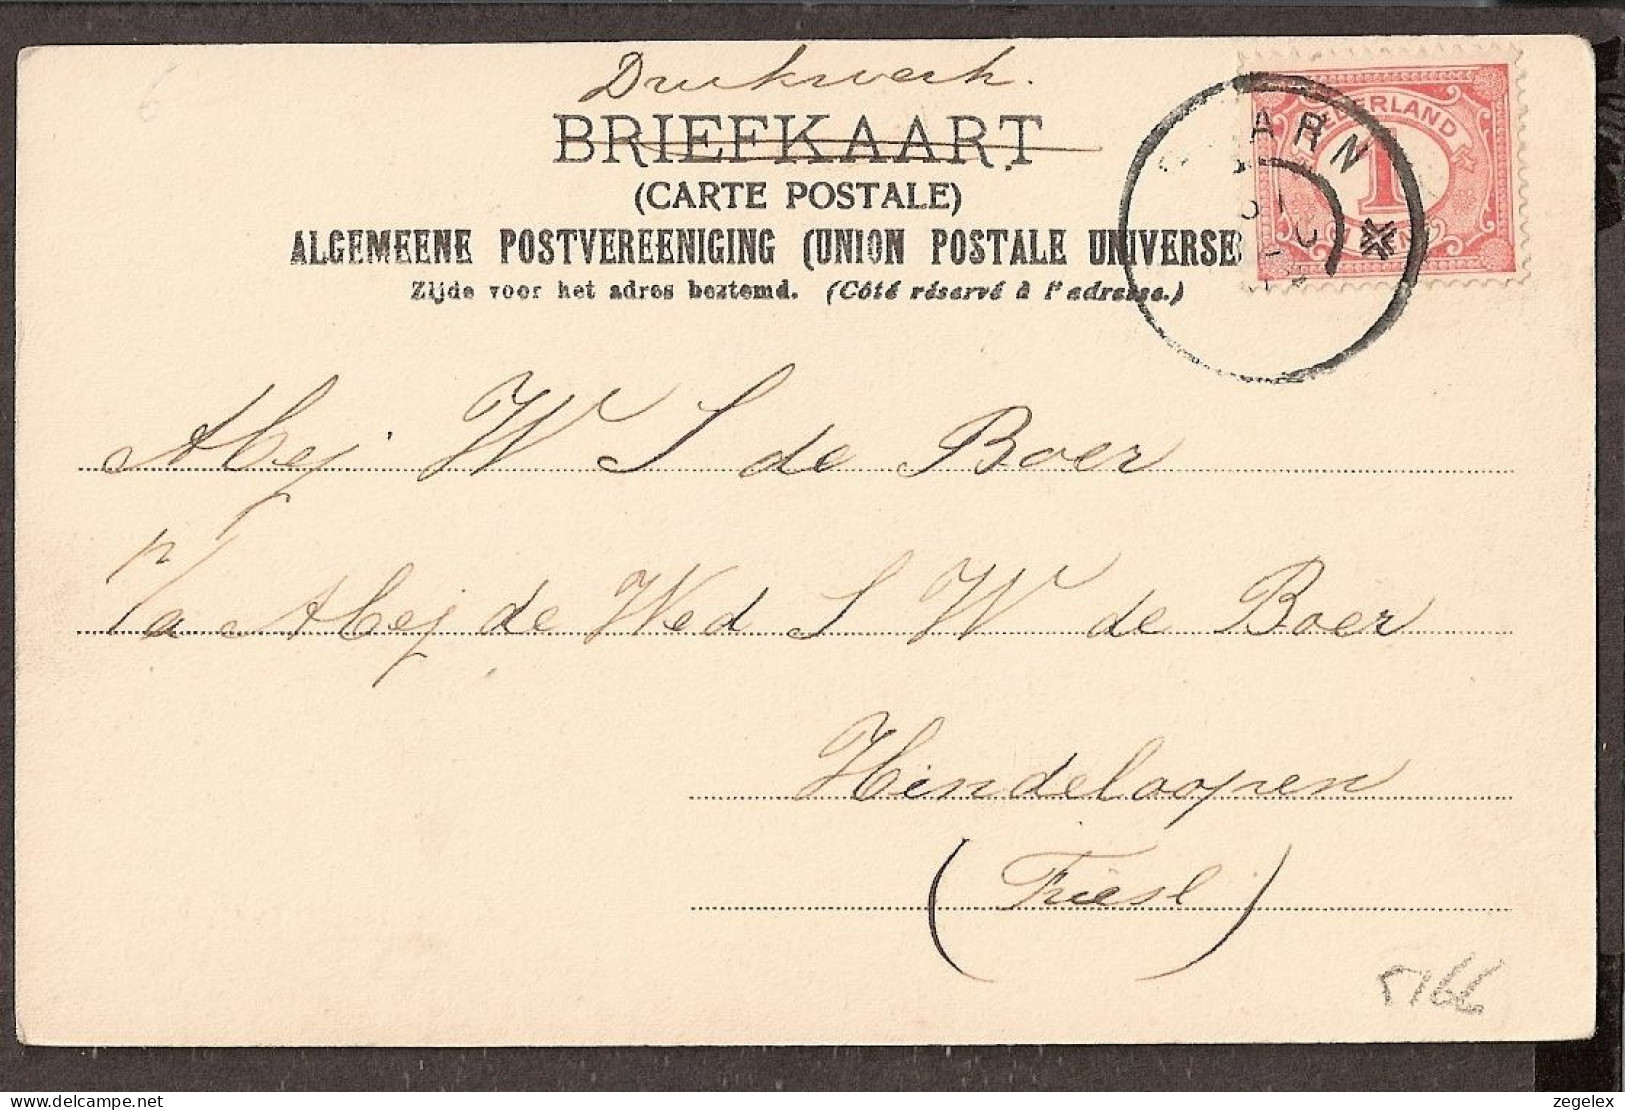 Drukwerk.
BRIEFKAART
(CARTE POSTALE)
ALGEMEENE POSTVEREENIGING (UNION POSTALE UNIVERSE
Zijde voor het adres bestemd. (Côté réservé à l'adresse.)
ARN
DERLAND
1
Abej W S de Boer
p/a Abej de Wed S W de Boer
Hindeloopen
(Friesl)
5166
zegelex